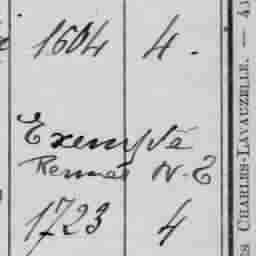 1604 4.
Exempté
Rennes N-E
1723 4
ES CHARLES-LAVAUZELLE. —